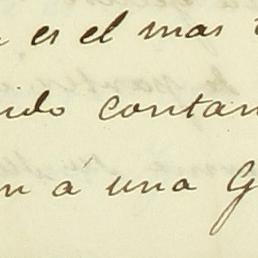 es el mas
ido contan
n a una G